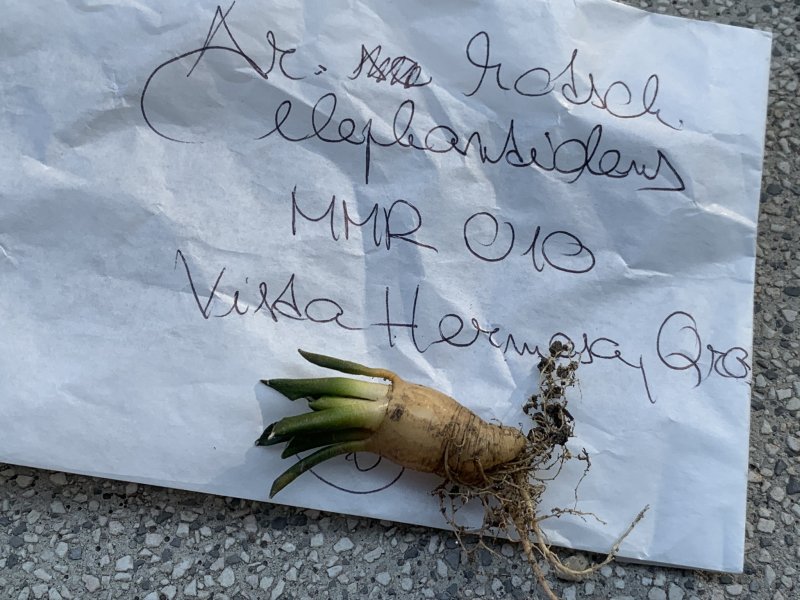 Ar. kotsch.
elephantidens
MMR 010
Vista Hermosa, Qro